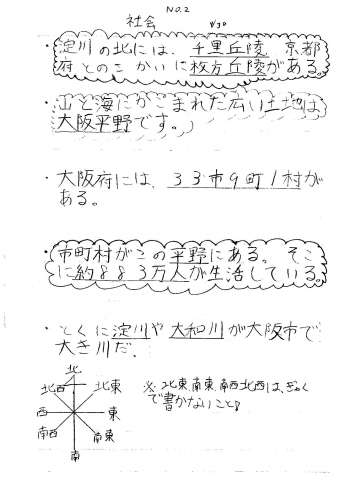 No.2
社会 4/30
・淀川の北には、千里丘陵、京都
府とのこかいに枚方丘陵がある。
・山と海にかこまれた広い土地は
大阪平野です。
・大阪府には、33市9町1村が
ある。
・市町村がこの平野にある。そこ
に約883万人が生活している。
・とくに淀川や大和川が大阪市で
大き川だ。
北
北西 北東
西 東
南西 南東
南
※北東、南東、南西、北西は、ぎゃく
で書かないこと!